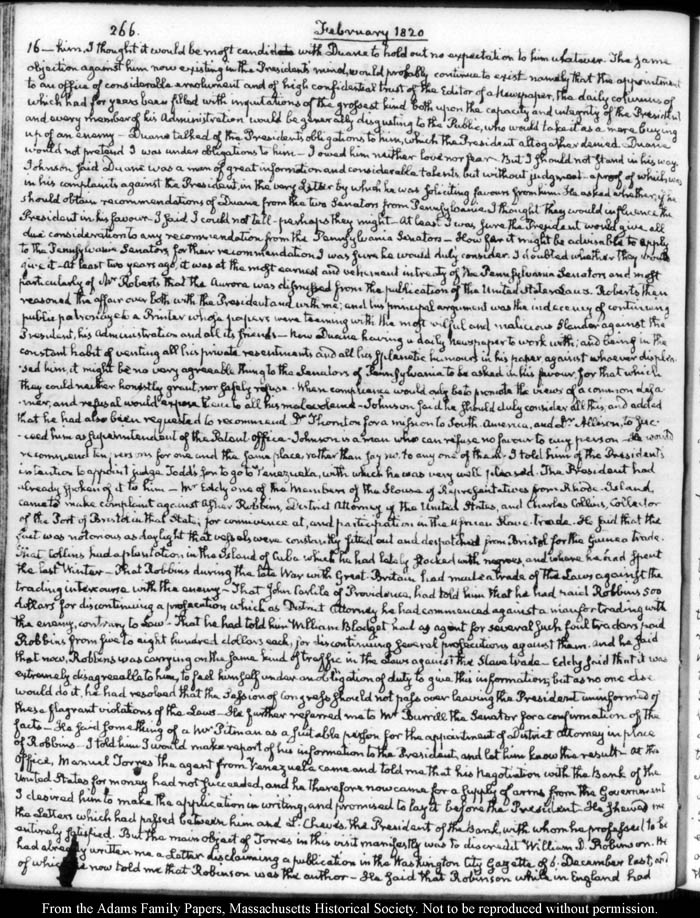 266.
February 1820
16 — him, I thought it would be most candid with Duane to hold out no expectation to him whatever. The same
objection against him now existing in the President's mind, would probably continue to exist namely that the appointment
to an office of considerable emolument and of high confidential trust of the Editor of a Newspaper, the daily columns of
which had for years been filled with imputations of the grossest kind both upon the capacity and integrity of the President
and every member of his Administration would be generally disgusting to the Public, who would take it as a mere buying
up of an enemy — Duane talked of the President's obligations to him, which the President altogether denied. Duane
would not pretend I was under obligations to him — I owed him neither love nor fear — But I should not stand in his way.
Johnson said Duane was a man of great information and considerable talents but without judgment — a proof of which was
in his complaints against the President, in the very Letter by which he was soliciting favours from him. He asked whether, if he
should obtain recommendations of Duane from the two Senators from Pennsylvania. I thought they would influence the
President in his favour. I said I could not tell — perhaps they might — At least I was sure the President would give all
due consideration to any recommendation from the Pennsylvania Senators — How far it might be advisable to apply
to the Pennsylvania Senators, for their recommendation I was sure he would duly consider. I doubted whether they would
give it — At least two years ago, it was at the most earnest and vehement intreaty of the Pennsylvania Senators and most
particularly of Mr Roberts that the Aurora was dismissed from the publication of the United States Laws. Roberts then
reasoned the affair over both with the President and with me; and his principal argument was the indecency of continuing
public patronage to a Printer whose papers were teeming with the most wilful and malicious slander against the
President, his Administration and all its friends — Now Duane having a daily newspaper to work with; and being in the
constant habit of venting all his private resentments and all his splenetic humours in his paper against whoever displea-
sed him, it might be no very agreeable thing to the Senators of Pennsylvania to be asked in his favour for that which
they could neither honestly grant, nor safely refuse. When compliance would only be to promote the views of a common defa-
mer, and refusal would expose to all his malevolence — Johnson said he should duly consider all this, and added
that he had also been requested to recommend Dr Thornton for a mission to South America, and Dr Allison, to suc-
ceed him as Superintendent of the Patent office — Johnson is a man who can refuse no favour to any person — He would
recommend ten persons for one and the same place rather than say no to any one of them — I told him of the President's
intention to appoint judge Todd's son to go to Venezuela, with which he was very well pleased. The President had
already spoken of it to him — Mr Eddy one of the Members of the House of Representatives from Rhode-Island,
came to make complaint against Asher Robbins, District Attorney of the United States, and Charles Collins, Collector
of the Port of Bristol in that State; for connivence at, and participation in the African Slave-trade. He said that the
fact was notorious as daylight that vessels were constantly fitted out and despatched from Bristol for the Guinea trade.
That Collins had a plantation in the Island of Cuba which he had lately stocked with negroes and where he had spent
the last Winter — That Robbins during the late War with Great Britain had made a trade of the Laws against the
trading intercourse with the enemy — That John Carlile of Providence, had told him that he had paid Robbins 500
dollars for discontinuing a prosecution which as District Attorney he had commenced against a man for trading with
the enemy, contrary to Law — That he had told him William Blodget had as agent for several such foul traders paid
Robbins from five to eight hundred dollars each, for discontinuing several prosecutions against them. and he said
that now, Robbins was carrying on the same kind of traffic in the Laws against the Slave trade — Eddy said that it was
extremely disagreeable to him, to feel himself under an obligation of duty to give this information; but as no one else
would do it, he had resolved that the Session of Congress should not pass over leaving the President uninformed of
these flagrant violations of the Laws — He further referred me to Mr Burrill the Senator for a confirmation of the
facts — He said something of a Mr Pitman as a suitable person for the appointment of District Attorney in place
of Robbins — I told him I would make report of his information to the President, and let him know the result. At the
Office, Manuel Torres the agent from Venezuela came and told me that his Negotiation with the Bank of the
United States for money had not succeeded, and he therefore now came for a supply of arms from the Government
I desired him to make the application in writing, and promised to lay it before the President — He shewed me
the Letters which had passed between him and L. Cheves, the President of the Bank, with whom he professed to be
entirely satisfied. But the main object of Torres in this visit manifestly was to discredit William D. Robinson. He
had already written me a Letter disclaiming a publication in the Washington City Gazette of 6. December last, and
of which he now told me that Robinson was the author — He said that Robinson while in England had
From the Adams Family Papers, Massachusetts Historical Society. Not to be reproduced without permission.